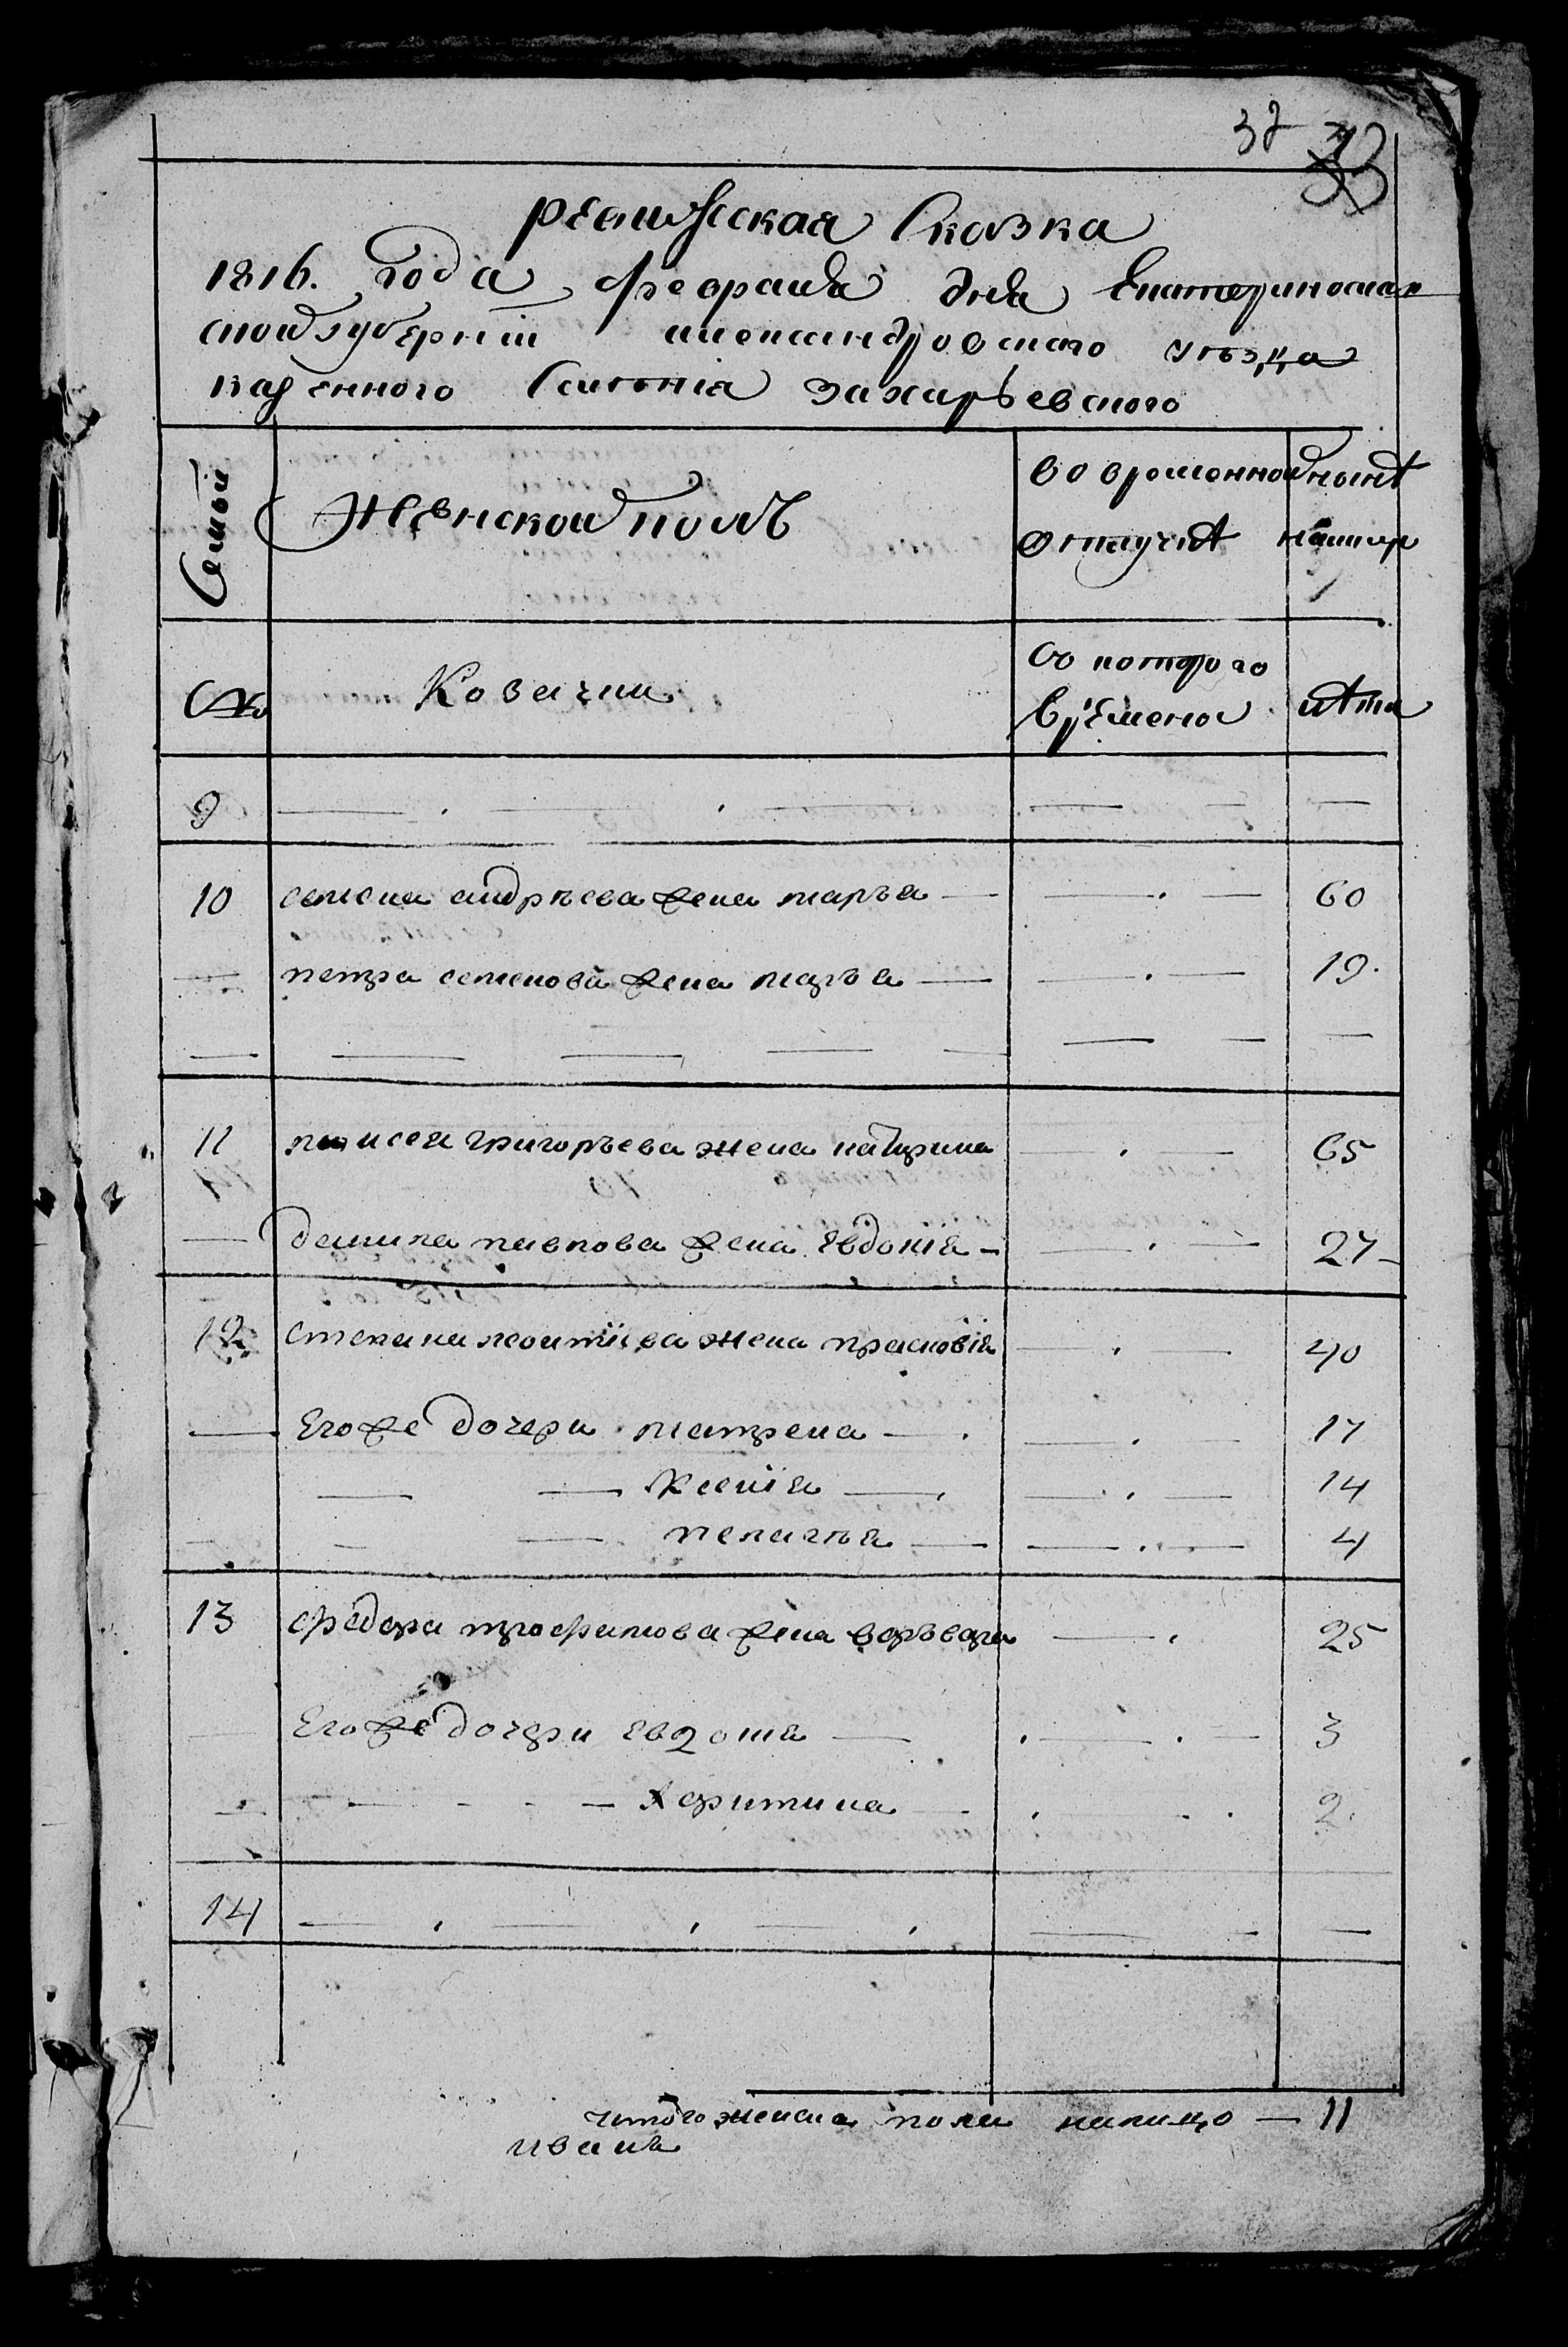 32 33
ревижская Сказка
1816. года Февраля дня Екатеринослав
ской губерніи александровского уезда
казенного Селенія захарьевского
Семьи
Женской полъ
Во временной отлучкѣ
нынѣ на лицо
№
Козачки
Съ которого времена
лѣта
9
10 семена андрѣева жена марья 60
петра семенова жена марья 19.
11 моисея григорьева жена катерина 65
данила павлова жена Евдокія 27
12 Степана жена прасковія 40
Егоже дочери матрена 17
Ксенія 14
пелагья 4
13 федора трофимова жена варъвара 25
Егоже дочери евдокія 3
Харитина 2
14
итого женска пола налицо 11
ивана